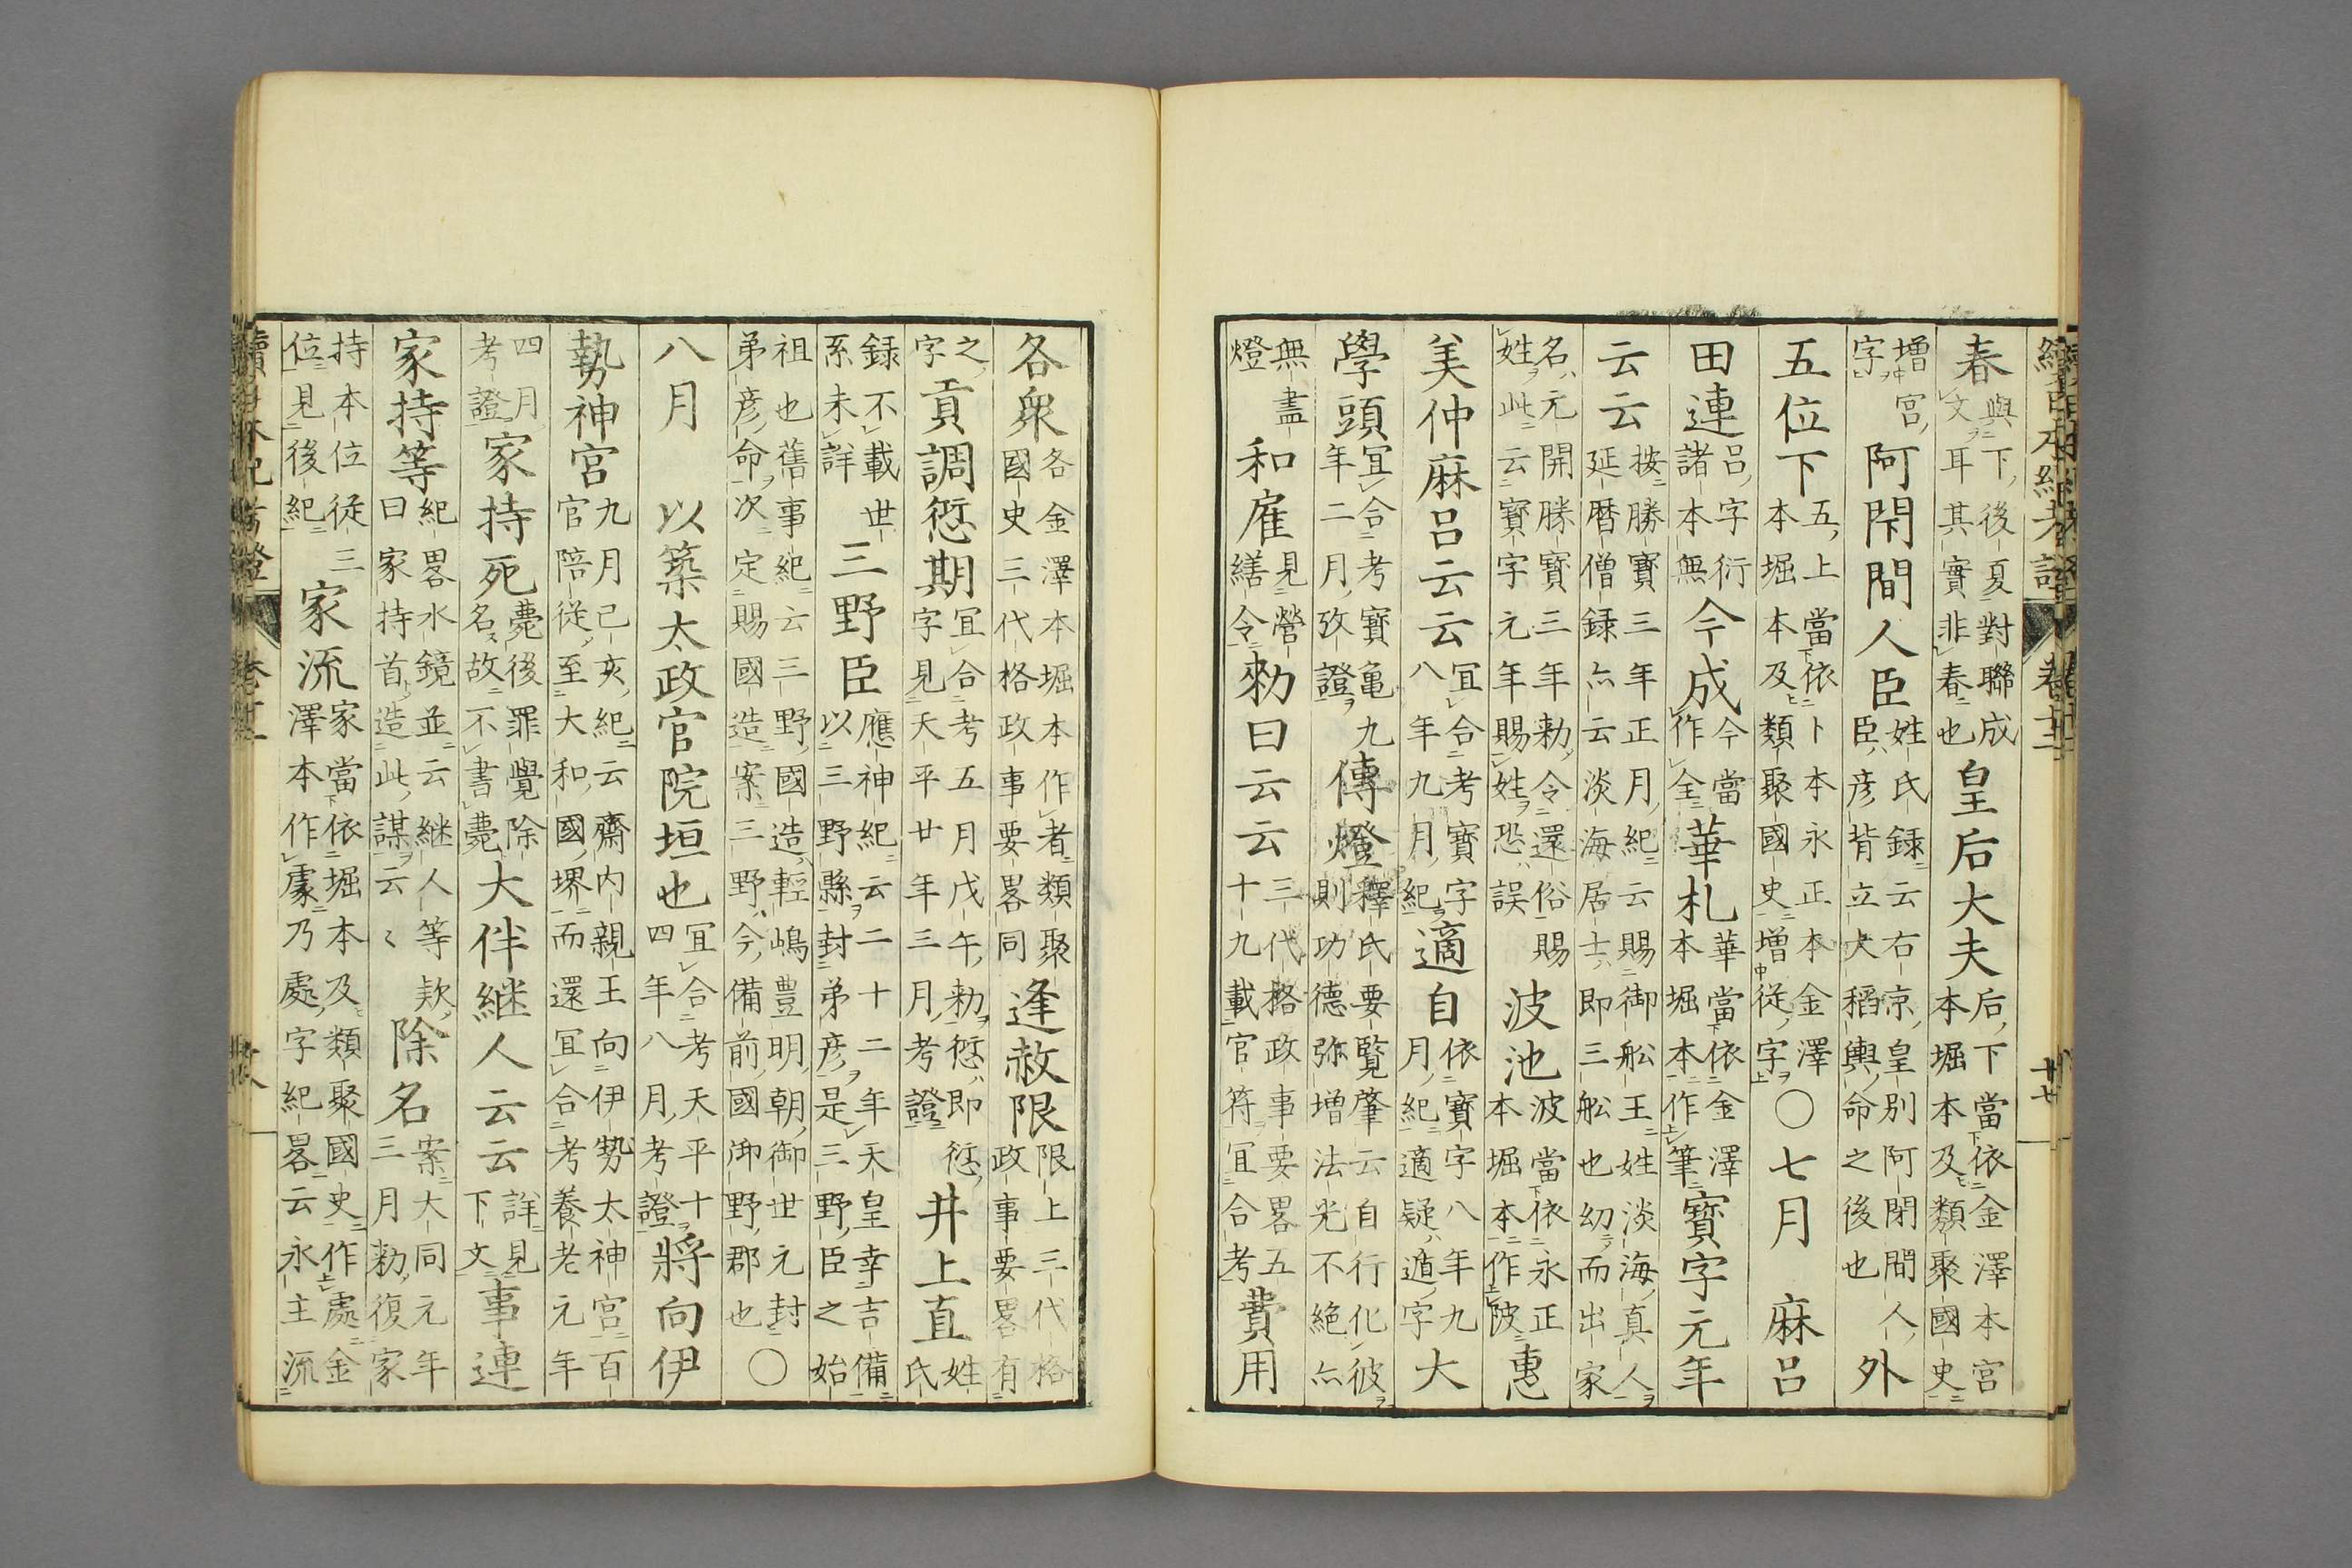 續日本紀考證 卷十二 廿七
春與下後夏對聯成文耳其實非春也皇后大夫后下當依金澤本宮本堀本及類聚國史
増宮字阿閇間人臣姓氏録云右京皇別阿閇間人臣彦背立大稻輿命之後也外
五位下五上當依卜本永正本金澤本堀本及類聚國史増從字〇七月 麻呂
田連呂字衍諸本無今成今當作全華札華當依金澤本堀本作筆寳字元年
云云按勝寳三年正月紀云賜御舩王姓淡海真人延暦僧録亦云淡海居士即三舩也幻而出家
名元開勝寳三年勅令還俗賜姓此云寳字元年賜姓恐誤波池波當依永正本堀本作陂惠
美仲麻呂云云宜合考寳字八年九月紀適自依寳字八年九月紀適疑遁字大
學頭宜合考寳亀九年二月攷證傳燈釋氏要覧肇云自行化彼則功德弥増法光不絶亦
無盡燈和雇見營繕令勅曰云云三代格政事要畧五十九載官符宜合考費用
各衆各金澤本堀本作者類聚國史三代格政事要畧同逢赦限限上三代格政事要畧有
之字貢調愆期宜合考五月戊午勅愆即愆字見天平廿年三月考證井上直姓氏
録不載世系未詳三野臣應神紀云二十二年天皇幸吉備以三野縣封弟彦是三野臣之始
祖也舊事紀云三野國造輕嶋豊明朝御世元封弟彦命次定賜國造案三野今備前國御野郡也〇
八月 以築太政官院垣也宜合考天平十四年八月考證將向伊
勢神宮九月己亥紀云齋内親王向伊勢太神宮百官陪從至大和國堺而還宜合考養老元年
四月考證家持死薨後罪覺除名故不書薨大伴継人云云詳見下文事連
家持等紀畧水鏡並云継人等款曰家持首造此謀云〻除名案大同元年三月勅復家
持本位從三位見後紀家流家當依堀本及類聚國史作處金澤本作䖏乃處字紀畧云永主流